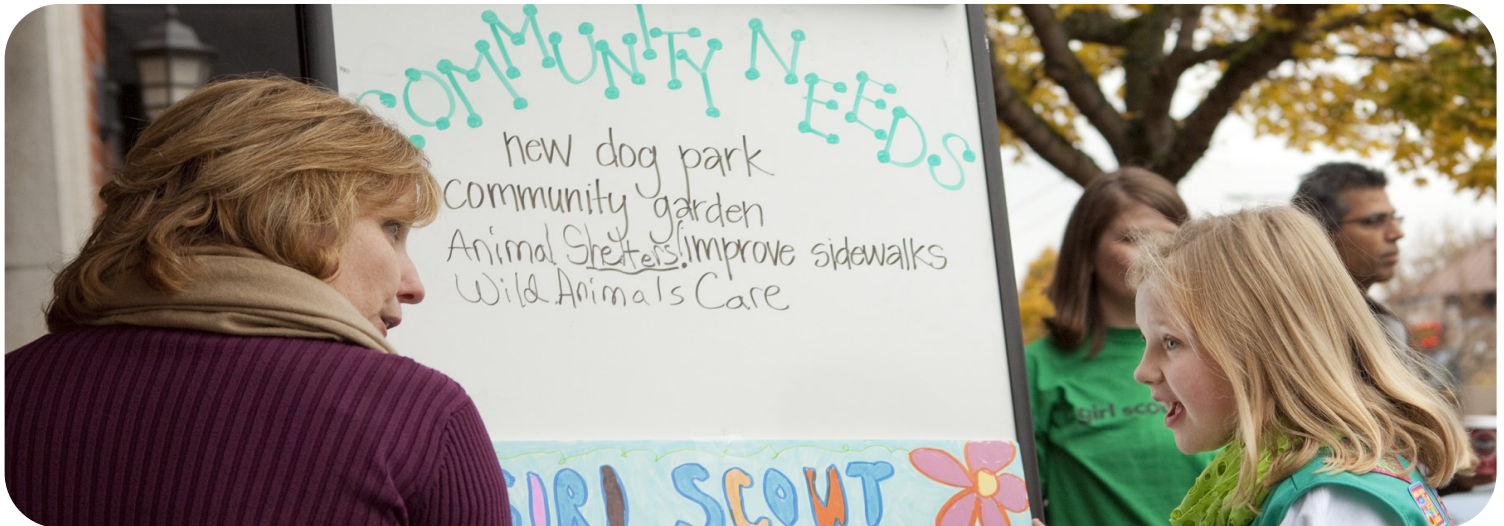 COMMUNITY NEEDS
new dog park
community garden
Animal Shelters! improve sidewalks
Wild Animals Care
GIRL SCOUT
girl scou